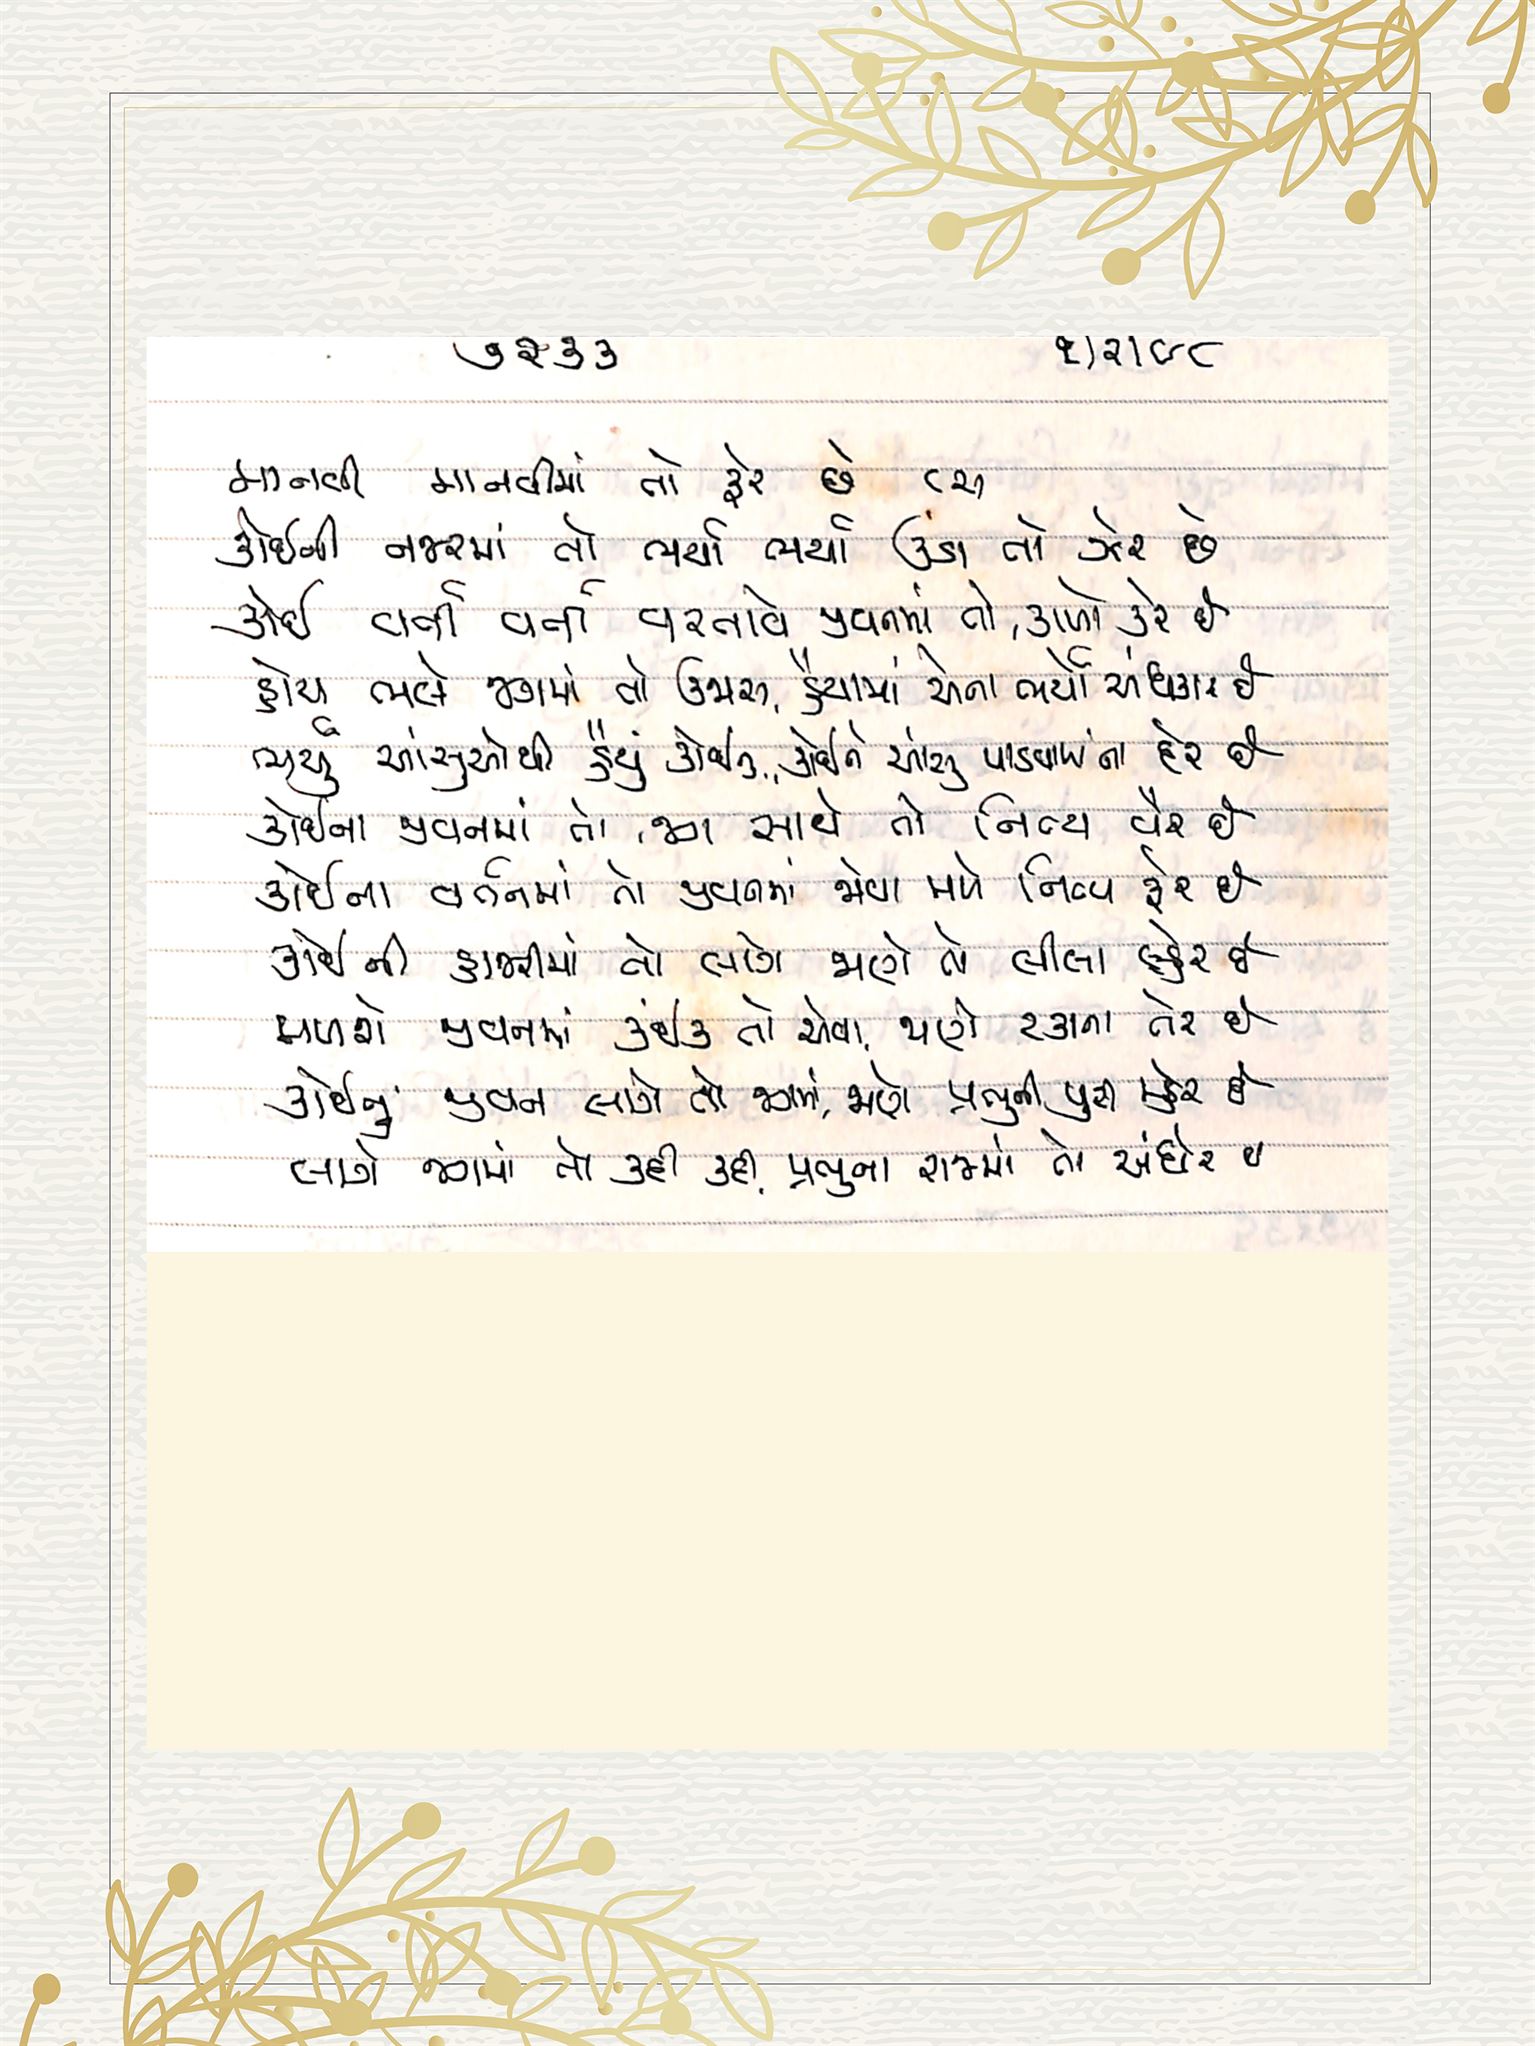 ૭૨૩૩ ૧)૨)૯૮
માનવી માનવીમાં તો ફેર છે
કોઈની નજરમાં તો ભર્યા ભર્યા ઉંડા તો ઝેર છે
કોઈ વર્તી વર્તી વરતાવે જીવનમાં તો, કાળો કેર છે
હોય ભલે જગમાં તો ઉજાસ, હૈયામાં એના ભર્યો અંધકાર છે
ભર્યું આંસુઓથી હૈયું કોઈનું, કોઈને આંસુ પાડવાના છે
કોઈના જીવનમાં તો, જગ સાથે તો નિત્ય વૈર છે
કોઈના વર્તનમાં તો જીવનમાં જોવા મળે નિત્ય ફેર છે
કોઈની હાજરીમાં તો લાગે જાણે તો લીલા લ્હેર છે
મળશે જીવનમાં કંઈક તો એવા, જાણે રકાના તેર છે
કોઈનું જીવન લાગે તો જગમાં, જાણે પ્રભુની પુરી મ્હેર છે
લાગે જગમાં તો કદી કદી, પ્રભુના રાજમાં તો અંધેર છે